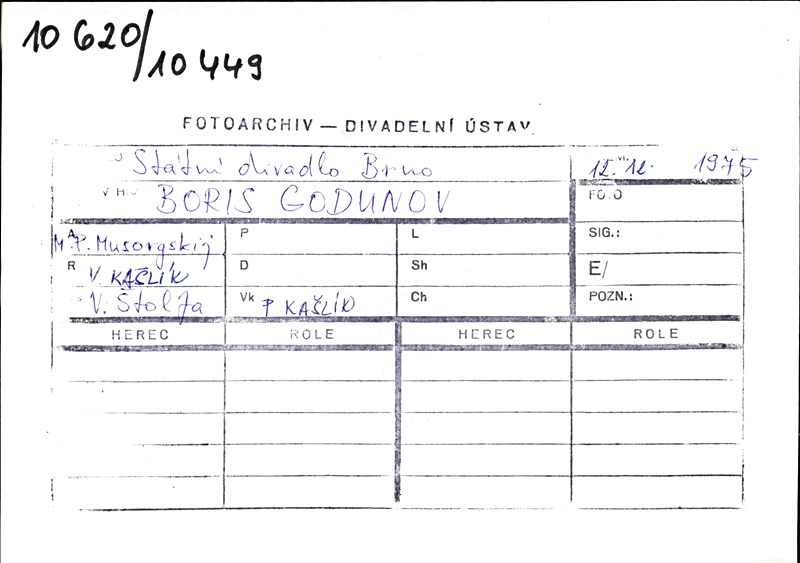 10 620/
10 449
FOTOARCHIV — DIVADELNÍ ÚSTAV
Státní divadlo Brno 12. 12. 1975
BORIS GODUNOV FOTO
A M. P. Musorgskij P L SIG.:
R V. KAŠLÍK D Sh E/
V. Štolfa Vk P KAŠLÍK Ch POZN.:
HEREC ROLE HEREC ROLE